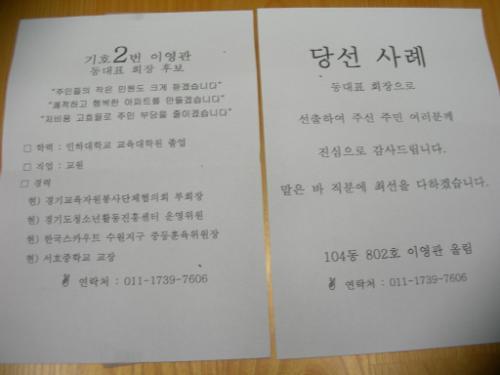 기호2번 이영관
동대표 회장 후보
"주민들의 작은 민원도 크게 듣겠습니다"
"쾌적하고 행복한 아파트를 만들겠습니다"
"저비용 고효율로 주민 부담을 줄이겠습니다"
□ 학력 : 인하대학교 교육대학원 졸업
□ 직업 : 교원
□ 경력
현) 경기교육자원봉사단체협의회 부회장
현) 경기도청소년활동진흥센터 운영위원
현) 한국스카우트 수원지구 중등훈육위원장
현) 서호중학교 교장
연락처 : 011-1739-7606
당선 사례
동대표 회장으로
선출하여 주신 주민 여러분께
진심으로 감사드립니다.
맡은 바 직분에 최선을 다하겠습니다.
104동 802호 이영관 올림
연락처 : 011-1739-7606